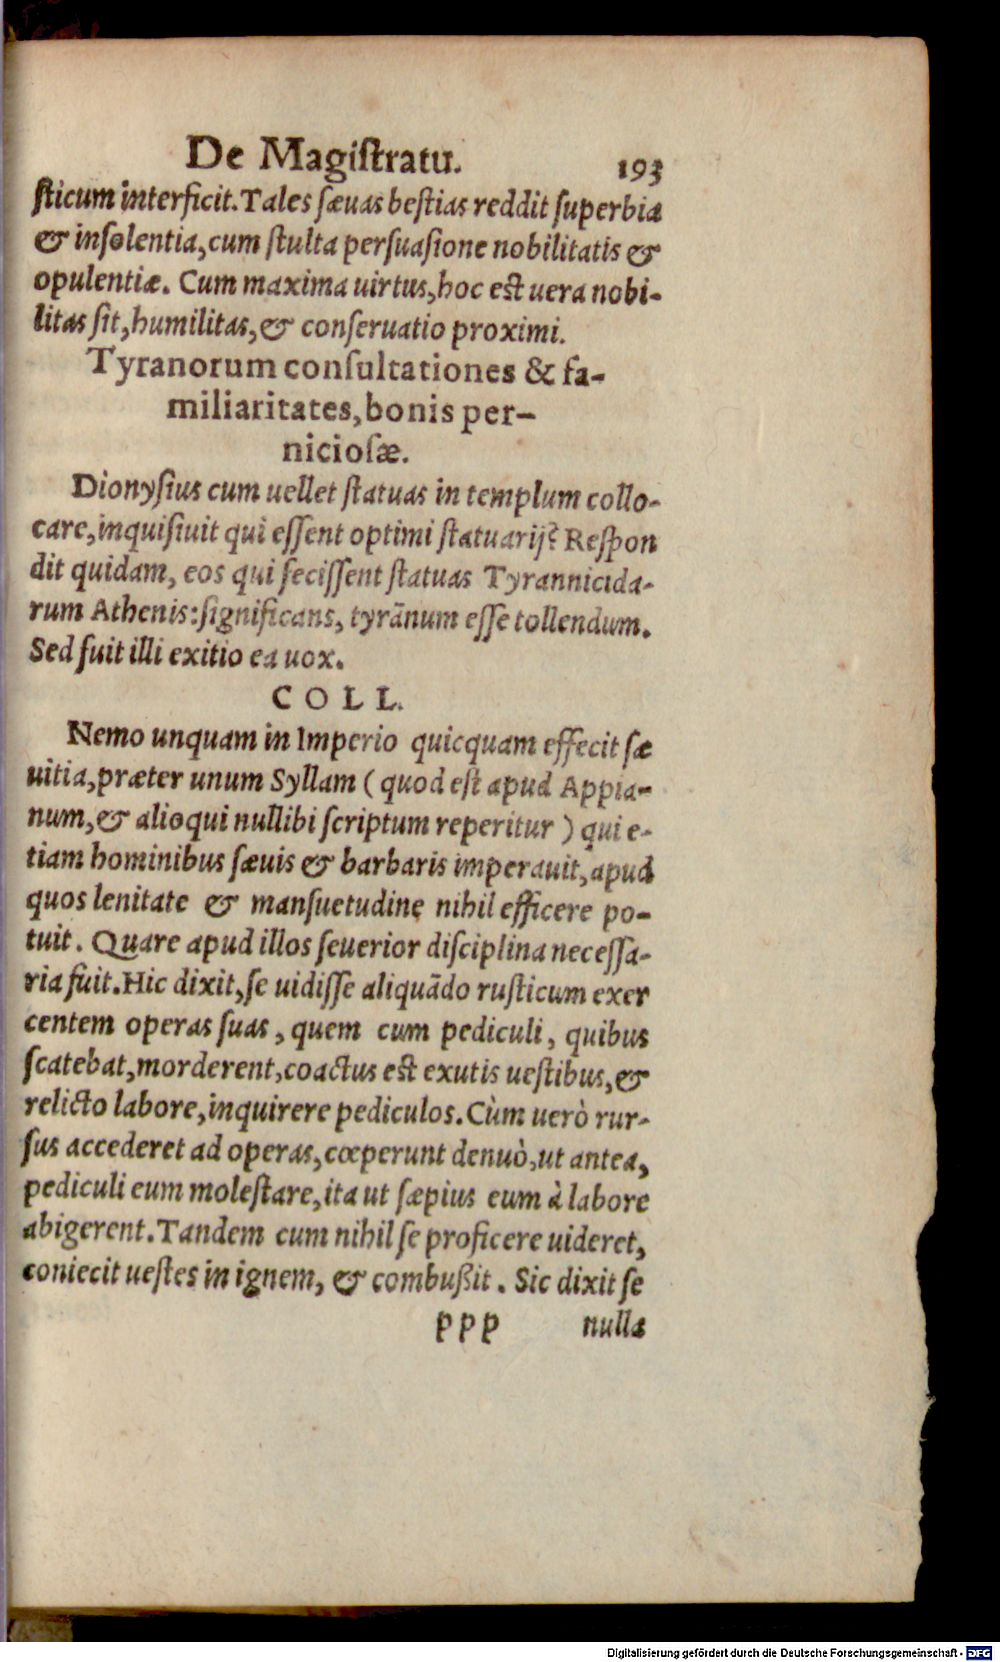 De Magiſtratu. 193
ſticum interficit. Tales ſæuas beſtias reddit ſuperbia
& inſolentia, cum ſtulta perſuaſione nobilitatis &
opulentiæ. Cum maxima uirtus, hoc eſt uera nobi-
litas ſit, humilitas, & conſeruatio proximi.
Tyranorum conſultationes & fa-
miliaritates, bonis per-
nicioſæ.
Dionyſius cum uellet ſtatuas in templum collo-
care, inquiſiuit qui eſſent optimi ſtatuarij? Reſpon
dit quidam, eos qui feciſſent ſtatuas Tyrannicida-
rum Athenis: ſignificans, tyrãnum eſſe tollendum.
Sed fuit illi exitio ea uox.
COLL.
Nemo unquam in Imperio quicquam effecit ſæ
uitia, præter unum Syllam (quod eſt apud Appia-
num, & alioqui nullibi ſcriptum reperitur) qui e-
tiam hominibus ſæuis & barbaris imperauit, apud
quos lenitate & manſuetudine nihil efficere po-
tuit. Quare apud illos ſeuerior diſciplina neceſſa-
ria fuit. Hic dixit, ſe uidiſſe aliquãdo ruſticum exer
centem operas ſuas, quem cum pediculi, quibus
ſcatebat, morderent, coactus eſt exutis ueſtibus, &
relicto labore, inquirere pediculos. Cùm uerò rur-
ſus accederet ad operas, cœperunt denuò, ut antea,
pediculi eum moleſtare, ita ut ſæpius eum à labore
abigerent. Tandem cum nihil ſe proficere uideret,
coniecit ueſtes in ignem, & combußit. Sic dixit ſe
ppp nulla
Digitalisierung gefördert durch die Deutsche Forschungsgemeinschaft - DFG